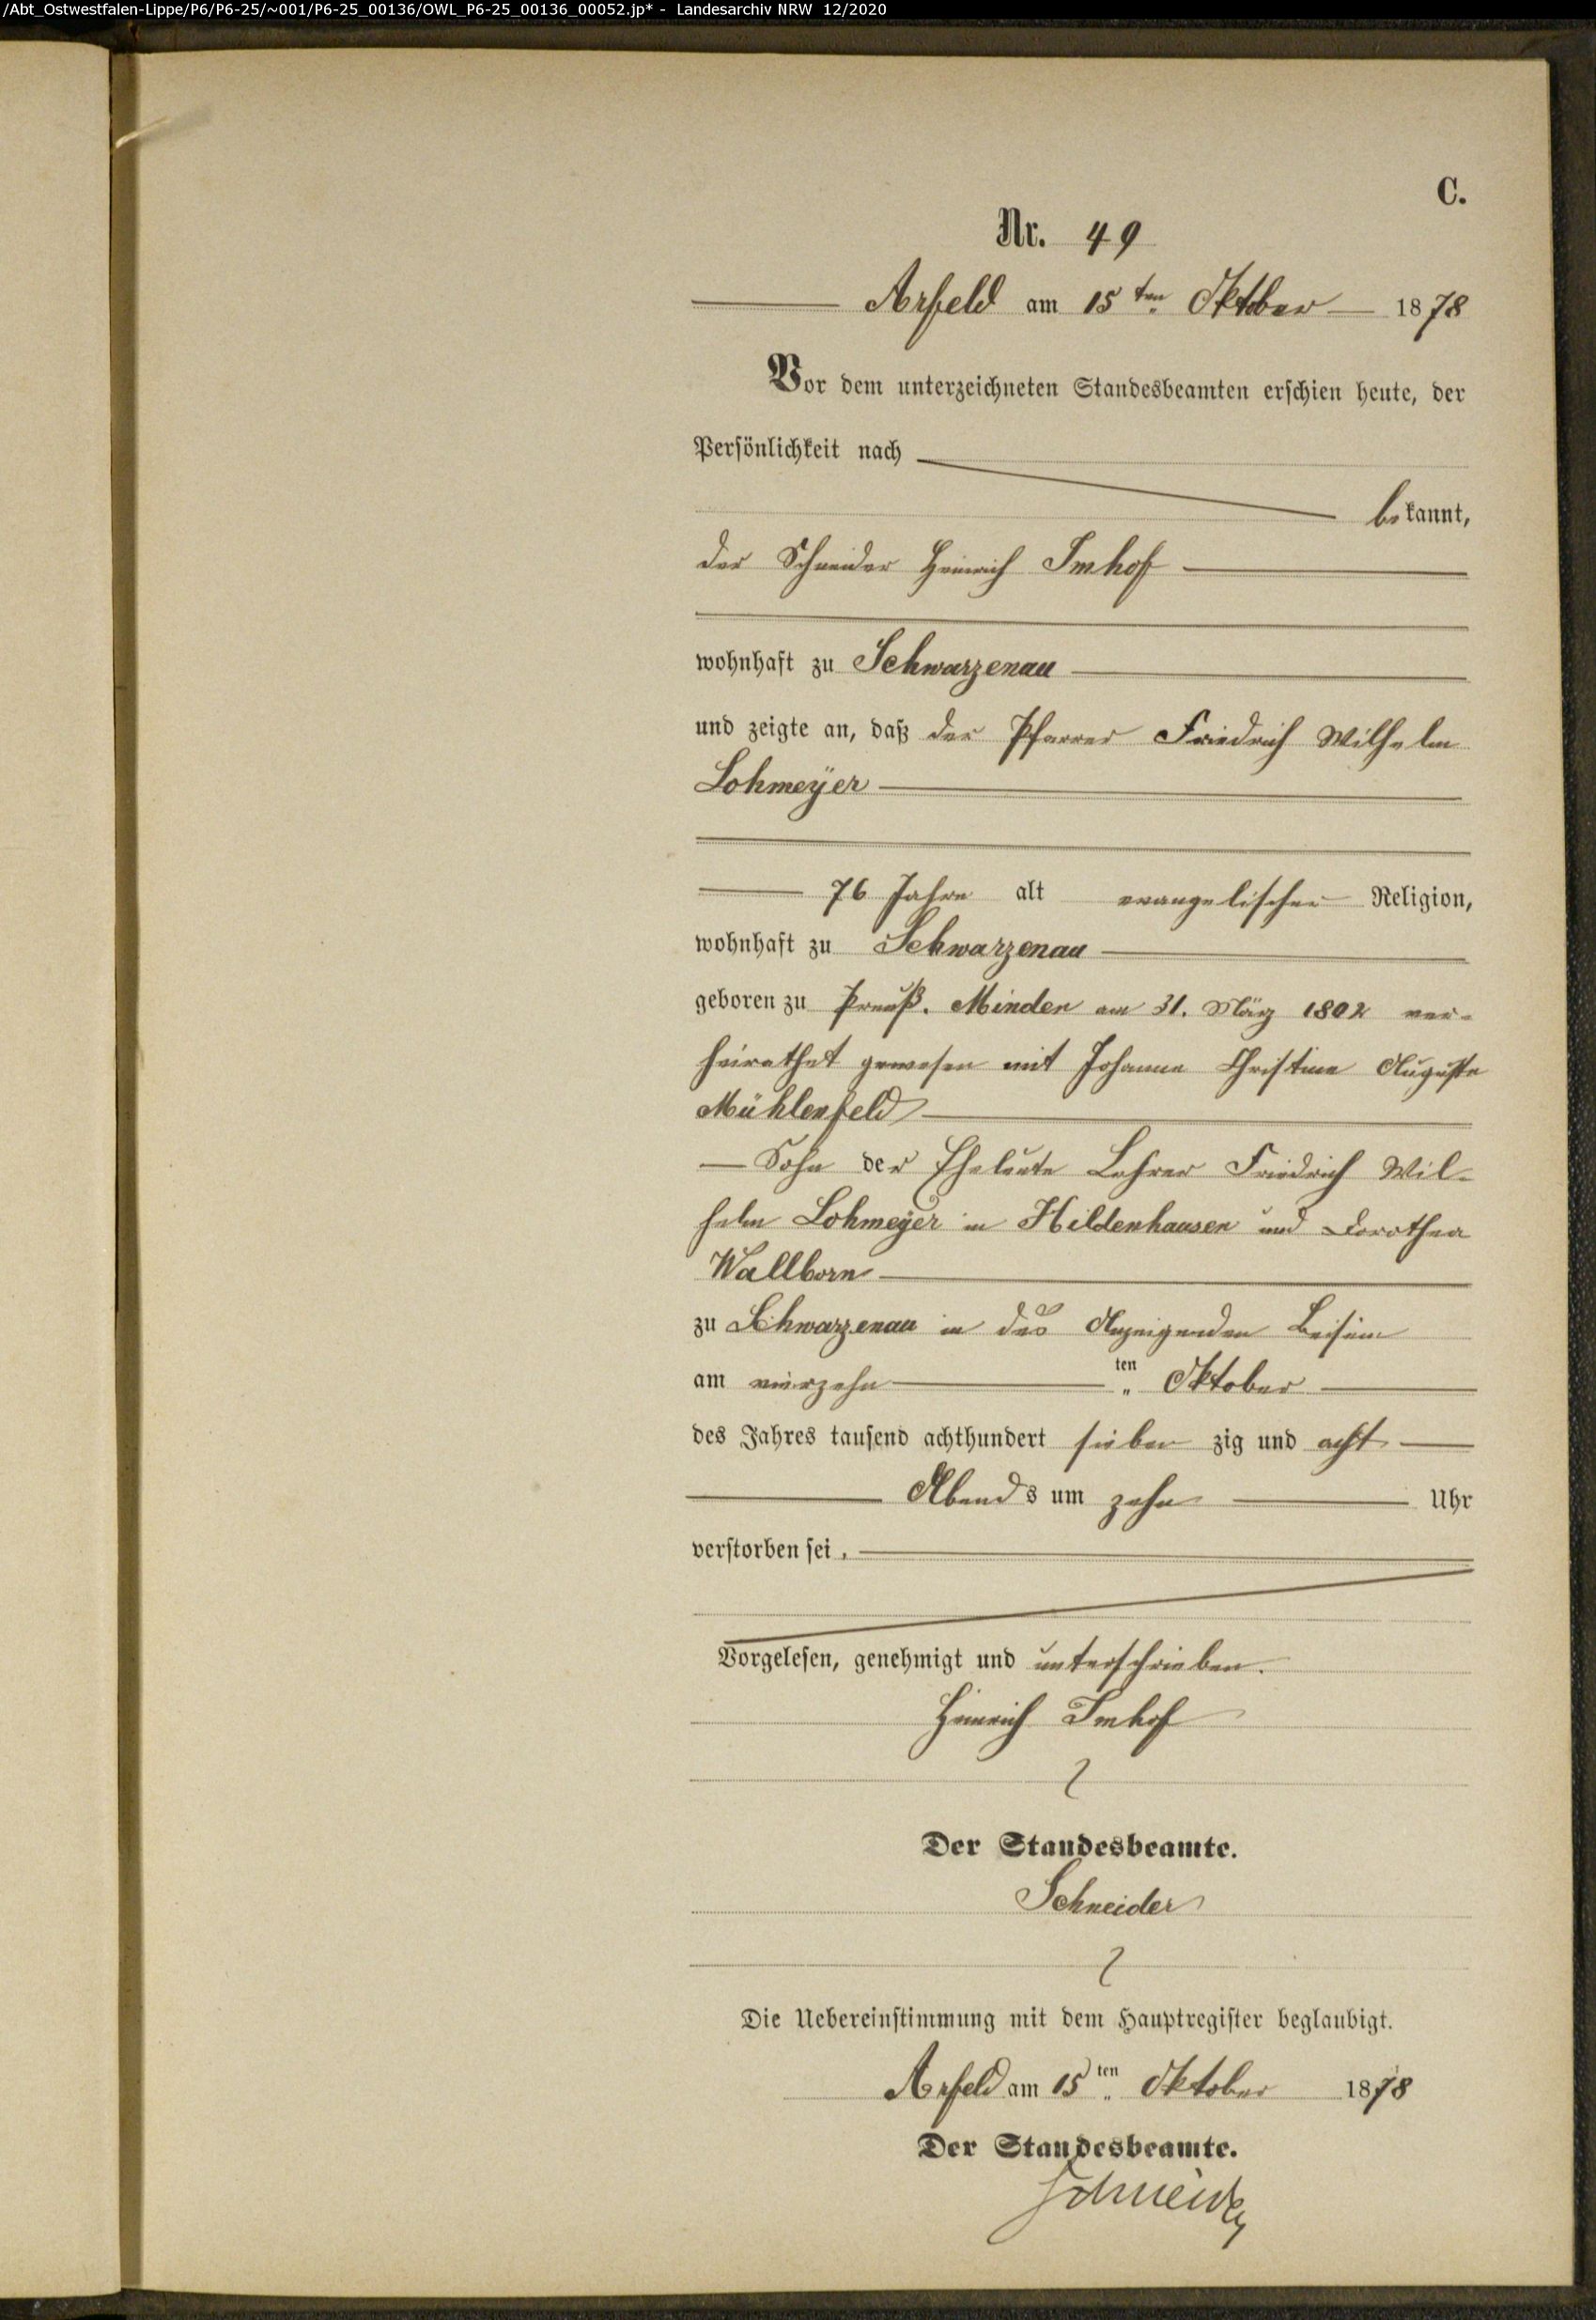 /Abt_Ostwestfalen-Lippe/P6/P6-25/~001/P6-25_00136/OWL_P6-25_00136_00052.jp* - Landesarchiv NRW 12/2020
C.
Nr. 49
Arfeld am 15ten Oktober 1878
Vor dem unterzeichneten Standesbeamten erschien heute, der
Persönlichkeit nach
bekannt,
der Schneider Heinrich Imhof
wohnhaft zu Schwarzenau
und zeigte an, daß der Pfarrer Friedrich Wilhelm
Lohmeÿer
76 Jahre alt evangelischer Religion,
wohnhaft zu Schwarzenau
geboren zu Preuß. Minden am 31. März 1802 ver-
heirathet gewesen mit Johanne Christine Auguste
Mühlenfeld
Sohn der Eheleute Lehrer Friedrich Wil-
helm Lohmeÿer in Hildenhausen und Dorothea
Wallborn
zu Schwarzenau in des Anzeigenden Beisein
am vierzehnten Oktober
des Jahres tausend achthundert siebenzig und acht
Abends um zehn Uhr
verstorben sei.
Vorgelesen, genehmigt und unterschrieben.
Heinrich Imhof
Der Standesbeamte.
Schneider
Die Uebereinstimmung mit dem Hauptregister beglaubigt.
Arfeld am 15ten Oktober 1878
Der Standesbeamte.
Schneider